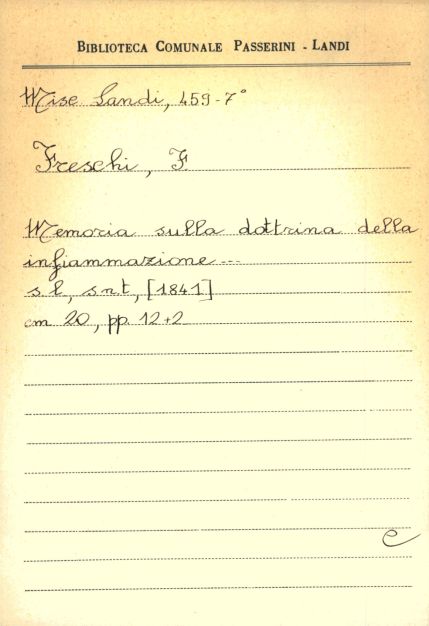 BIBLIOTECA COMUNALE PASSERINI - LANDI
Misc Landi, 459-7°
Freschi, F.
Memoria sulla dottrina della
infiammazione---
s l, s n t, [1841]
cm 20, pp 12+2
e